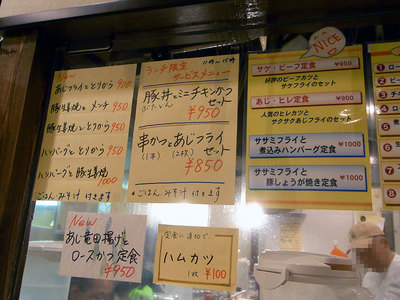 New
あじフライととりから 900
豚生姜焼とメンチ 950
豚生姜焼ととりから 950
ハンバーグととりから 950
ハンバーグと豚生姜焼
1000
ごはん・みそ汁 付きます
ランチ限定
11時〜15時
サービスメニュー
豚丼とミニチキンかつ
セット
¥950
串かつとあじフライ
(1本) (2枚) セット
¥850
ごはん、みそ汁 付きます
NICE
サケ・ビーフ定食 ¥950
好評のビーフカツと
サケフライのセット
あじ・ヒレ定食 ¥900
人気のヒレカツと
サクサクあじフライのセット
ササミフライと
煮込みハンバーグ定食
¥1000
ササミフライと
豚しょうが焼き定食
¥1000
New
あじ竜田揚げと
ロースかつ定食
¥950
定食に追加で
ハムカツ
1枚 ¥100